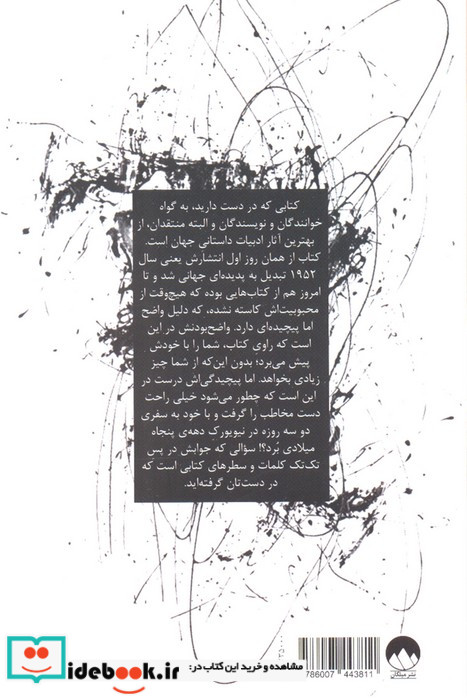 کتابی که در دست دارید، به گواه
خوانندگان و نویسندگان و البته منتقدان، از
بهترین آثار ادبیات داستانی جهان است.
کتاب از همان روز اول انتشارش یعنی سال
۱۹۵۲ تبدیل به پدیده‌ای جهانی شد و تا
امروز هم از کتاب‌هایی بوده که هیچ‌وقت از
محبوبیت‌اش کاسته نشده، که دلیل واضح
اما پیچیده‌ای دارد. واضح‌بودنش در این
است که راوی کتاب، شما را با خودش
پیش می‌برد؛ بدون این‌که از شما چیز
زیادی بخواهد. اما پیچیدگی‌اش درست در
این است که چطور می‌شود خیلی راحت
دست مخاطب را گرفت و با خود به سفری
دو سه روزه در نیویورک دهه‌ی پنجاه
میلادی بُرد؟! سؤالی که جوابش در پسِ
تک‌تک کلمات و سطرهای کتابی است که
در دست‌تان گرفته‌اید.
786007 443811
نشر میلکان
مشاهده و خرید این کتاب در:
idebook.ir